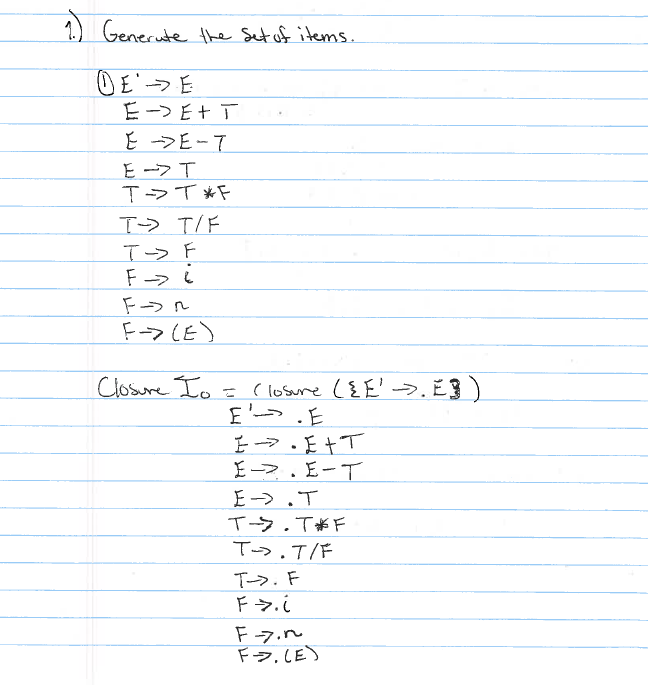 1.) Generate the set of items.
① E' → E
E → E + T
E → E - T
E → T
T → T * F
T → T/F
T → F
F → i
F → n
F → (E)
Closure I₀ = closure ({E' → .E})
E' → .E
E → .E+T
E → .E-T
E → .T
T → .T*F
T → .T/F
T → .F
F → .i
F → .n
F → .(E)